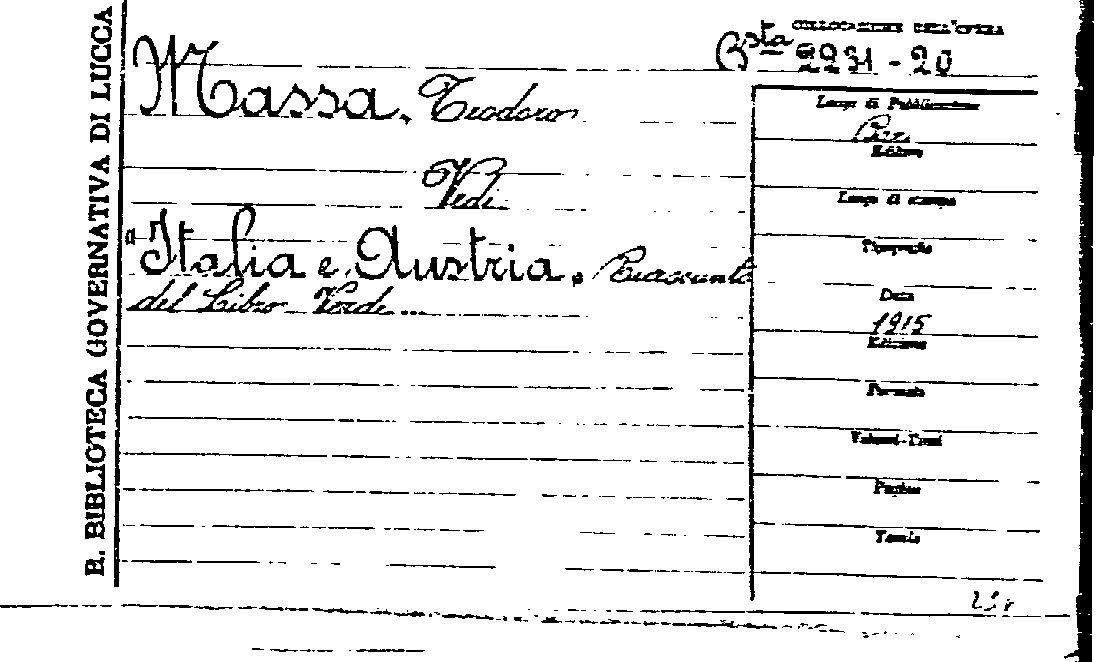 B. BIBLIOTECA GOVERNATIVA DI LUCCA
COLLOCAZIONE DELL'OPERA
Bsta 2231-20
Massa, Teodoro
Vedi
Italia e Austria. Riassunto
del Libro Verde...
Luogo di Pubblicazione
Editore
Luogo di stampa
Tipografo
Data
1915
Edizione
Formato
Volumi-Tomi
Pagine
Tavole